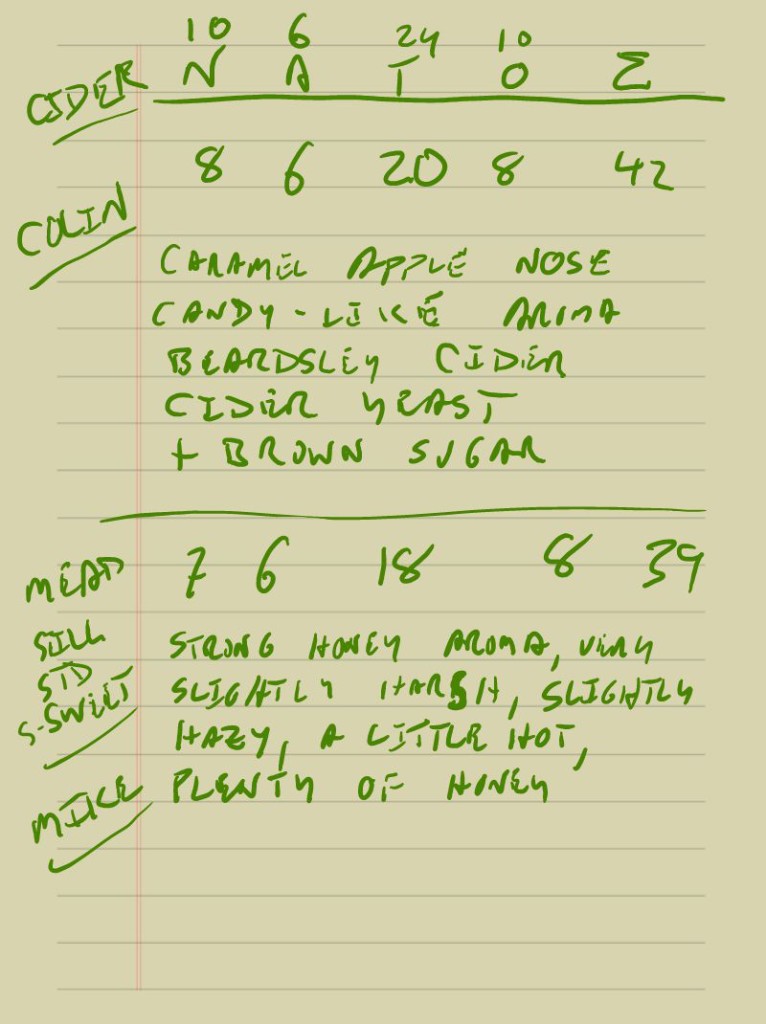 10 6 24 10
CIDER N A T O Σ
8 6 20 8 42
COLIN
CARAMEL APPLE NOSE
CANDY-LIKE AROMA
BEARDSLEY CIDER
CIDER YEAST
+ BROWN SUGAR
MEAD 7 6 18 8 39
STILL STRONG HONEY AROMA, VERY
STD SLIGHTLY HARSH, SLIGHTLY
S-SWEET HAZY, A LITTLE HOT,
MIKE PLENTY OF HONEY